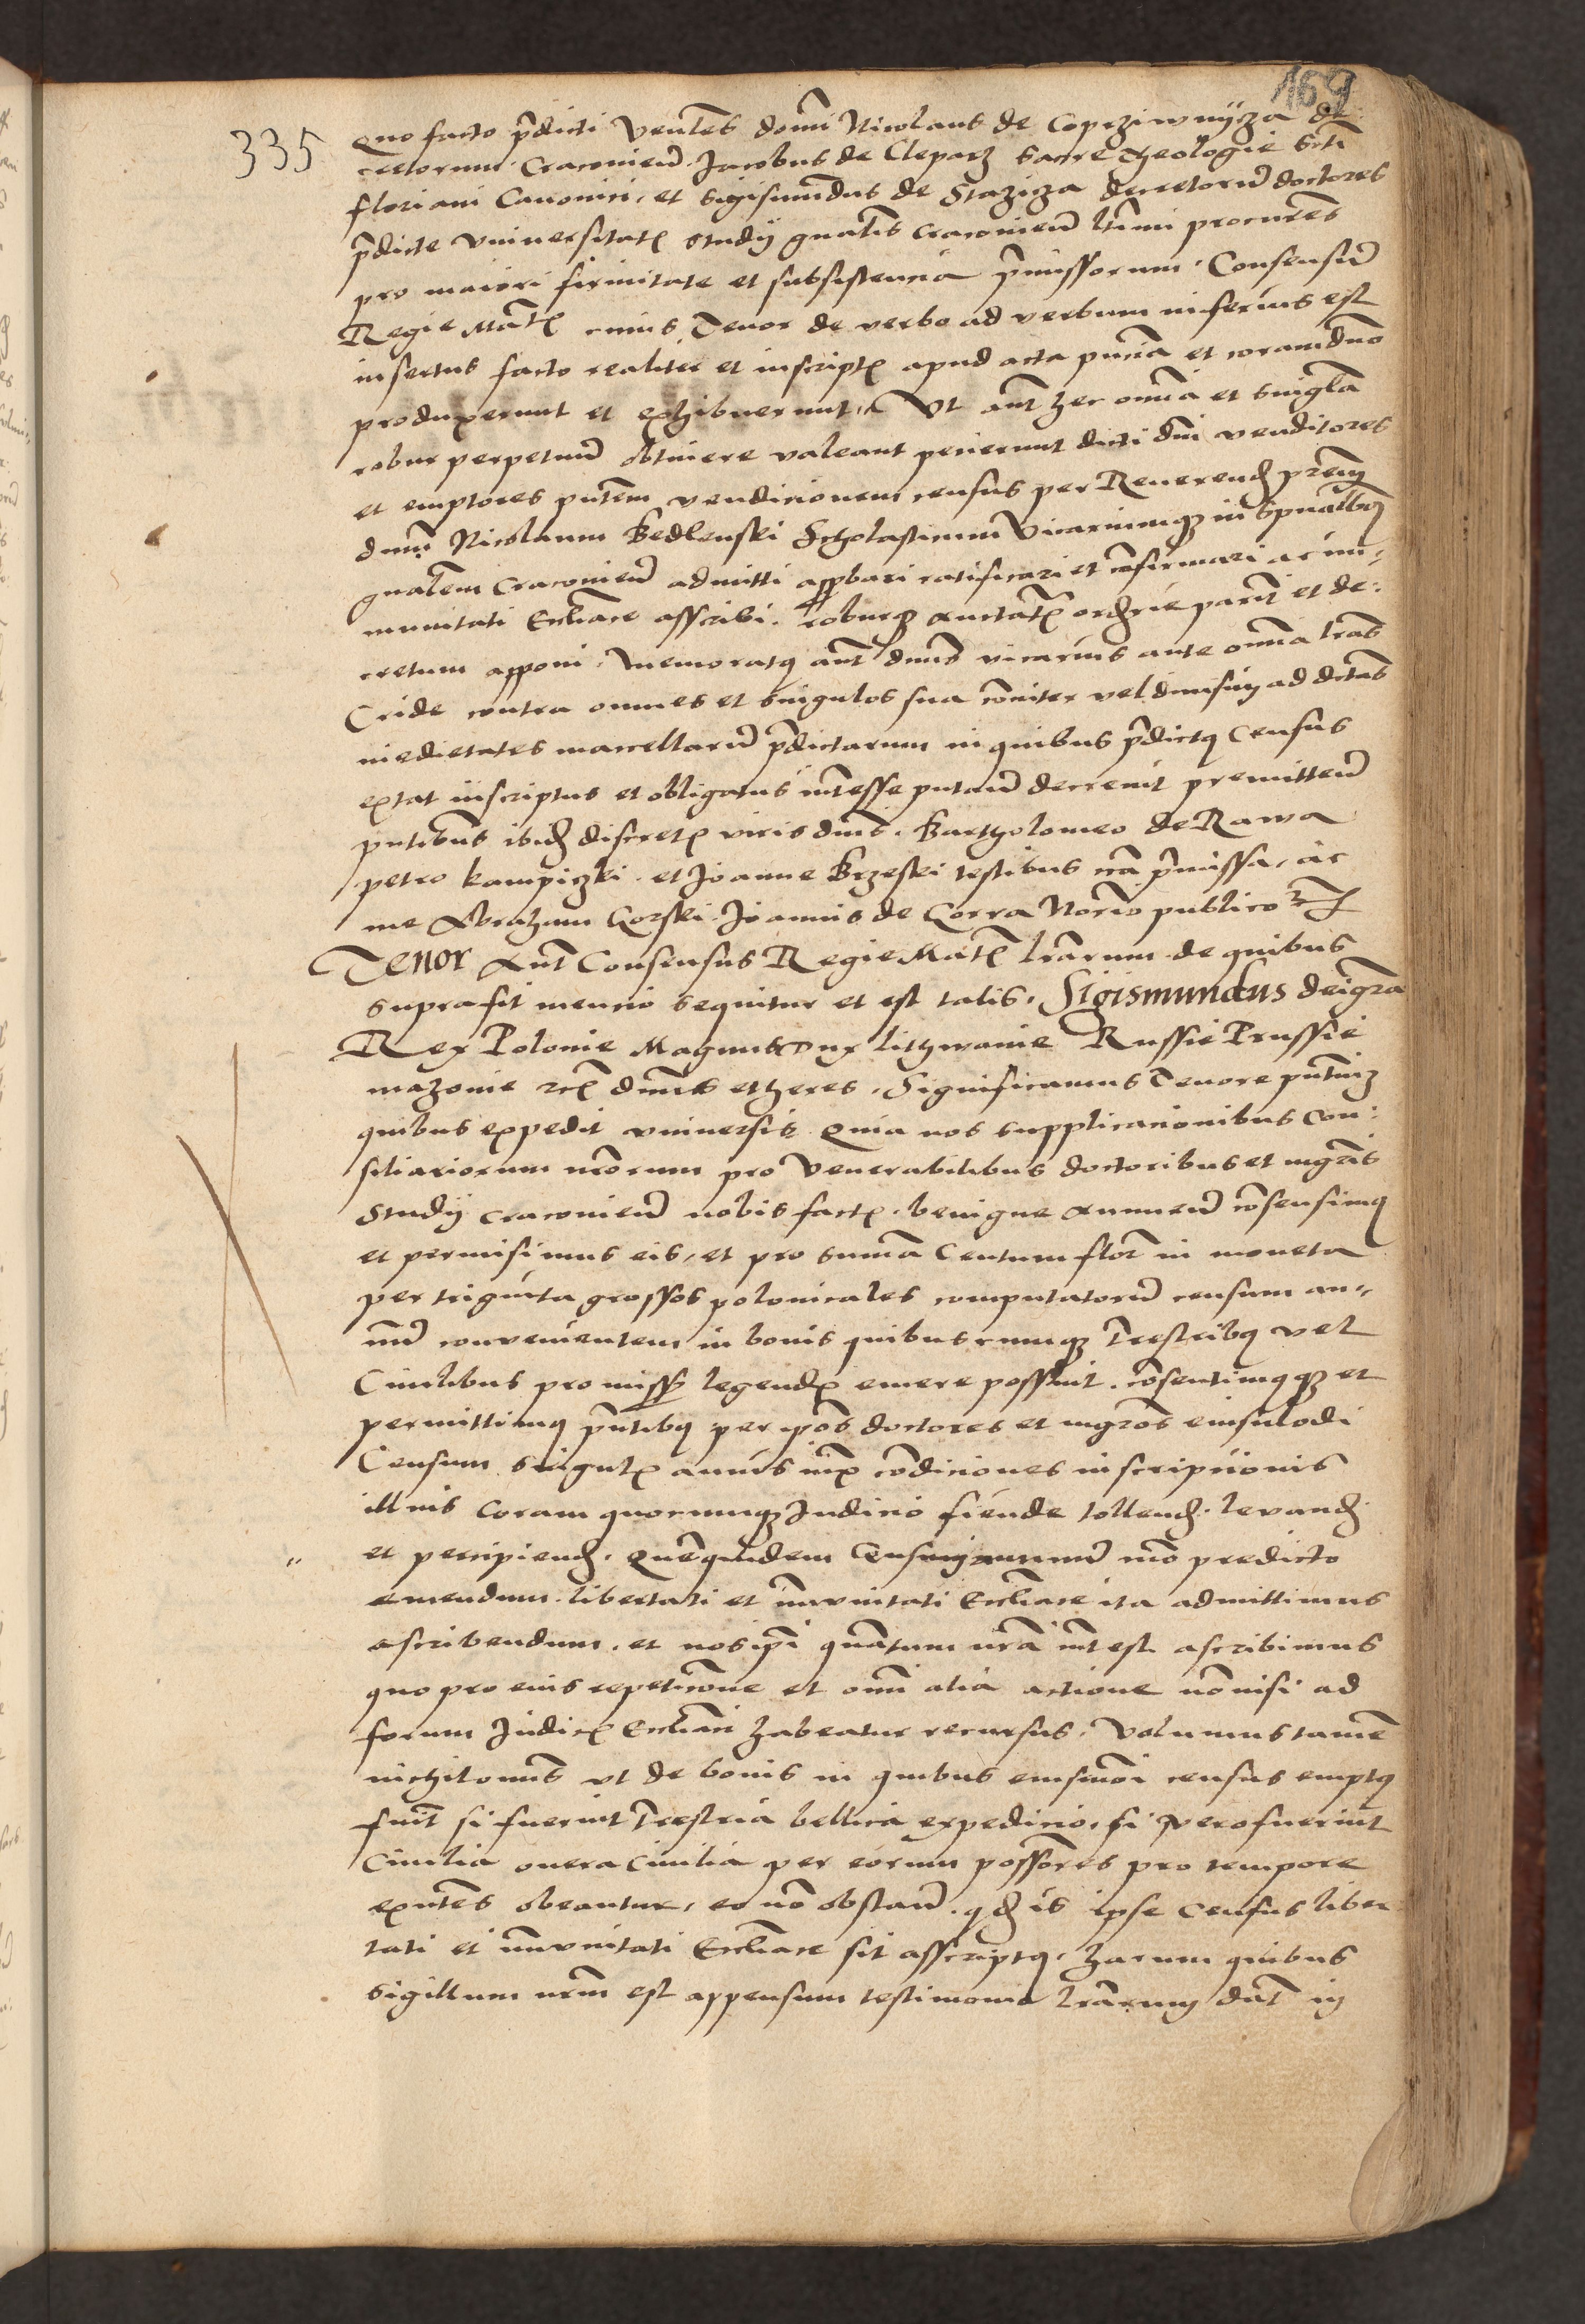 169
335
Quo facto p̄dicti Ven̄les domī Nicolaus de Coprziwnycza de
cretorum Craconien̄. Jacobus de Cleparz sacre theologie Sctī
floriani Canonici, et Sigismūdus de Stazicza decretorū doctores
p̄dicte vniuersitatꝭ studij gn̄alis Craconien̄ ltīmi procur̄es
pro maiori firmitate et subsistencia p̄missorum. Consensū
Regie Mātꝭ cuius Tenor de verbo ad verbum inferius est
insertus facto realiter et inscriptꝭ apud acta pn̄cia et coram dn̄o
produxerunt et exhibuerunt. Vt aūt hec om̄ia et singl̄a
robur perpetuū obtinere valeant pecierunt dicti dn̄i venditores
et emptores pn̄tem vendicionem census per Reuerend̄ pr̄em
dn̄m Nicolaum Bedlenski Scholasticum Vicariumqꝫ in Spūalibꝰ
gn̄alem Craconien̄ admitti approbari ratificari et cōfirmari ac im-
munitati Eccl̄iace asscribi. roburqꝫ auctātꝭ ordr̄ie parit̄ et de-
cretum apponi. Memoratꝰ aūt dn̄us vicarius ante om̄ia lr̄as
Cride contra omnes et singulos sua cōiter vel diuisim ad dictas
medietates marcellarū p̄dictarum in quibus p̄dictꝰ Census
extat inscriptus et obligatus int̄esse putan̄ decreuit premitten̄
pn̄tibus ibid̄ discretꝭ viris dn̄is. Bartholomeo de Rawa
petro kampiczki. et Joanne Brzeski testibus cā p̄missa. ac
me Abraham Gorski. Joannis de Gorra Nor̄io publico ꝛc
Tenor Aūt Consensus Regie Mātꝭ lr̄arum de quibus
supra fit mencio sequitur et est talis. Sigismundus dei gr̄a
Rex Polonie Magnus Dux lithwanie Russie Prussie
mazouie ꝛcꝭ dn̄us et heres. Significamus Tenore pn̄tium
quibus expedit vniuersis Quia nos supplicacionibus con-
siliariorum nr̄orum pro Venerabilibus doctoribus et mgr̄is
Studij Craconien̄ nobis factꝭ. benigne annuen̄ cōsensimꝰ
et permisimus eis, et pro sum̄a Centum flor̄ in moneta
per triginta grossos polonicales computatorū censum an-
nuū conuenientem in bonis quibuscumqꝫ Trr̄estribꝰ vel
Ciuilibus pro missꝭ legendꝭ emere possint. cōsentimꝰqꝫ et
permittimꝰ pn̄tibꝰ per ip̄os doctores et mgr̄os eiusmodi
Censum singulꝭ annis iux̄ cōdiciones inscripcionis
illius coram quocumqꝫ Judicio fiende tollend̄. levand̄
et percipiend̄. Quē quidem Censum annuū mō predicto
emendum. libertati et im̄unitati Eccl̄iace ita admittimus
ascribendum. et nos ip̄i quātum nr̄a int̄est ascribimus
quo pro eius repeticōne et om̄i alia actione nō nisi ad
forum Judicꝭ Eccl̄iaci habeatur recursus. Volumus tamē
nichilomī̄us vt de bonis in quibus eiusmōi census emptꝰ
fuit̄ si fuerint Trr̄estria bellica expedicio, si vero fuerint
Ciuilia onera Ciuilia per eorum possōres pro tempore
exn̄tes obeantur, eo nō obstan̄. qd̄ is ipse Census liber
tati et im̄unitati Eccl̄iace sit asscriptꝰ. harum quibus
sigillum nr̄m est appensum testimonio lr̄arum dat̄ in